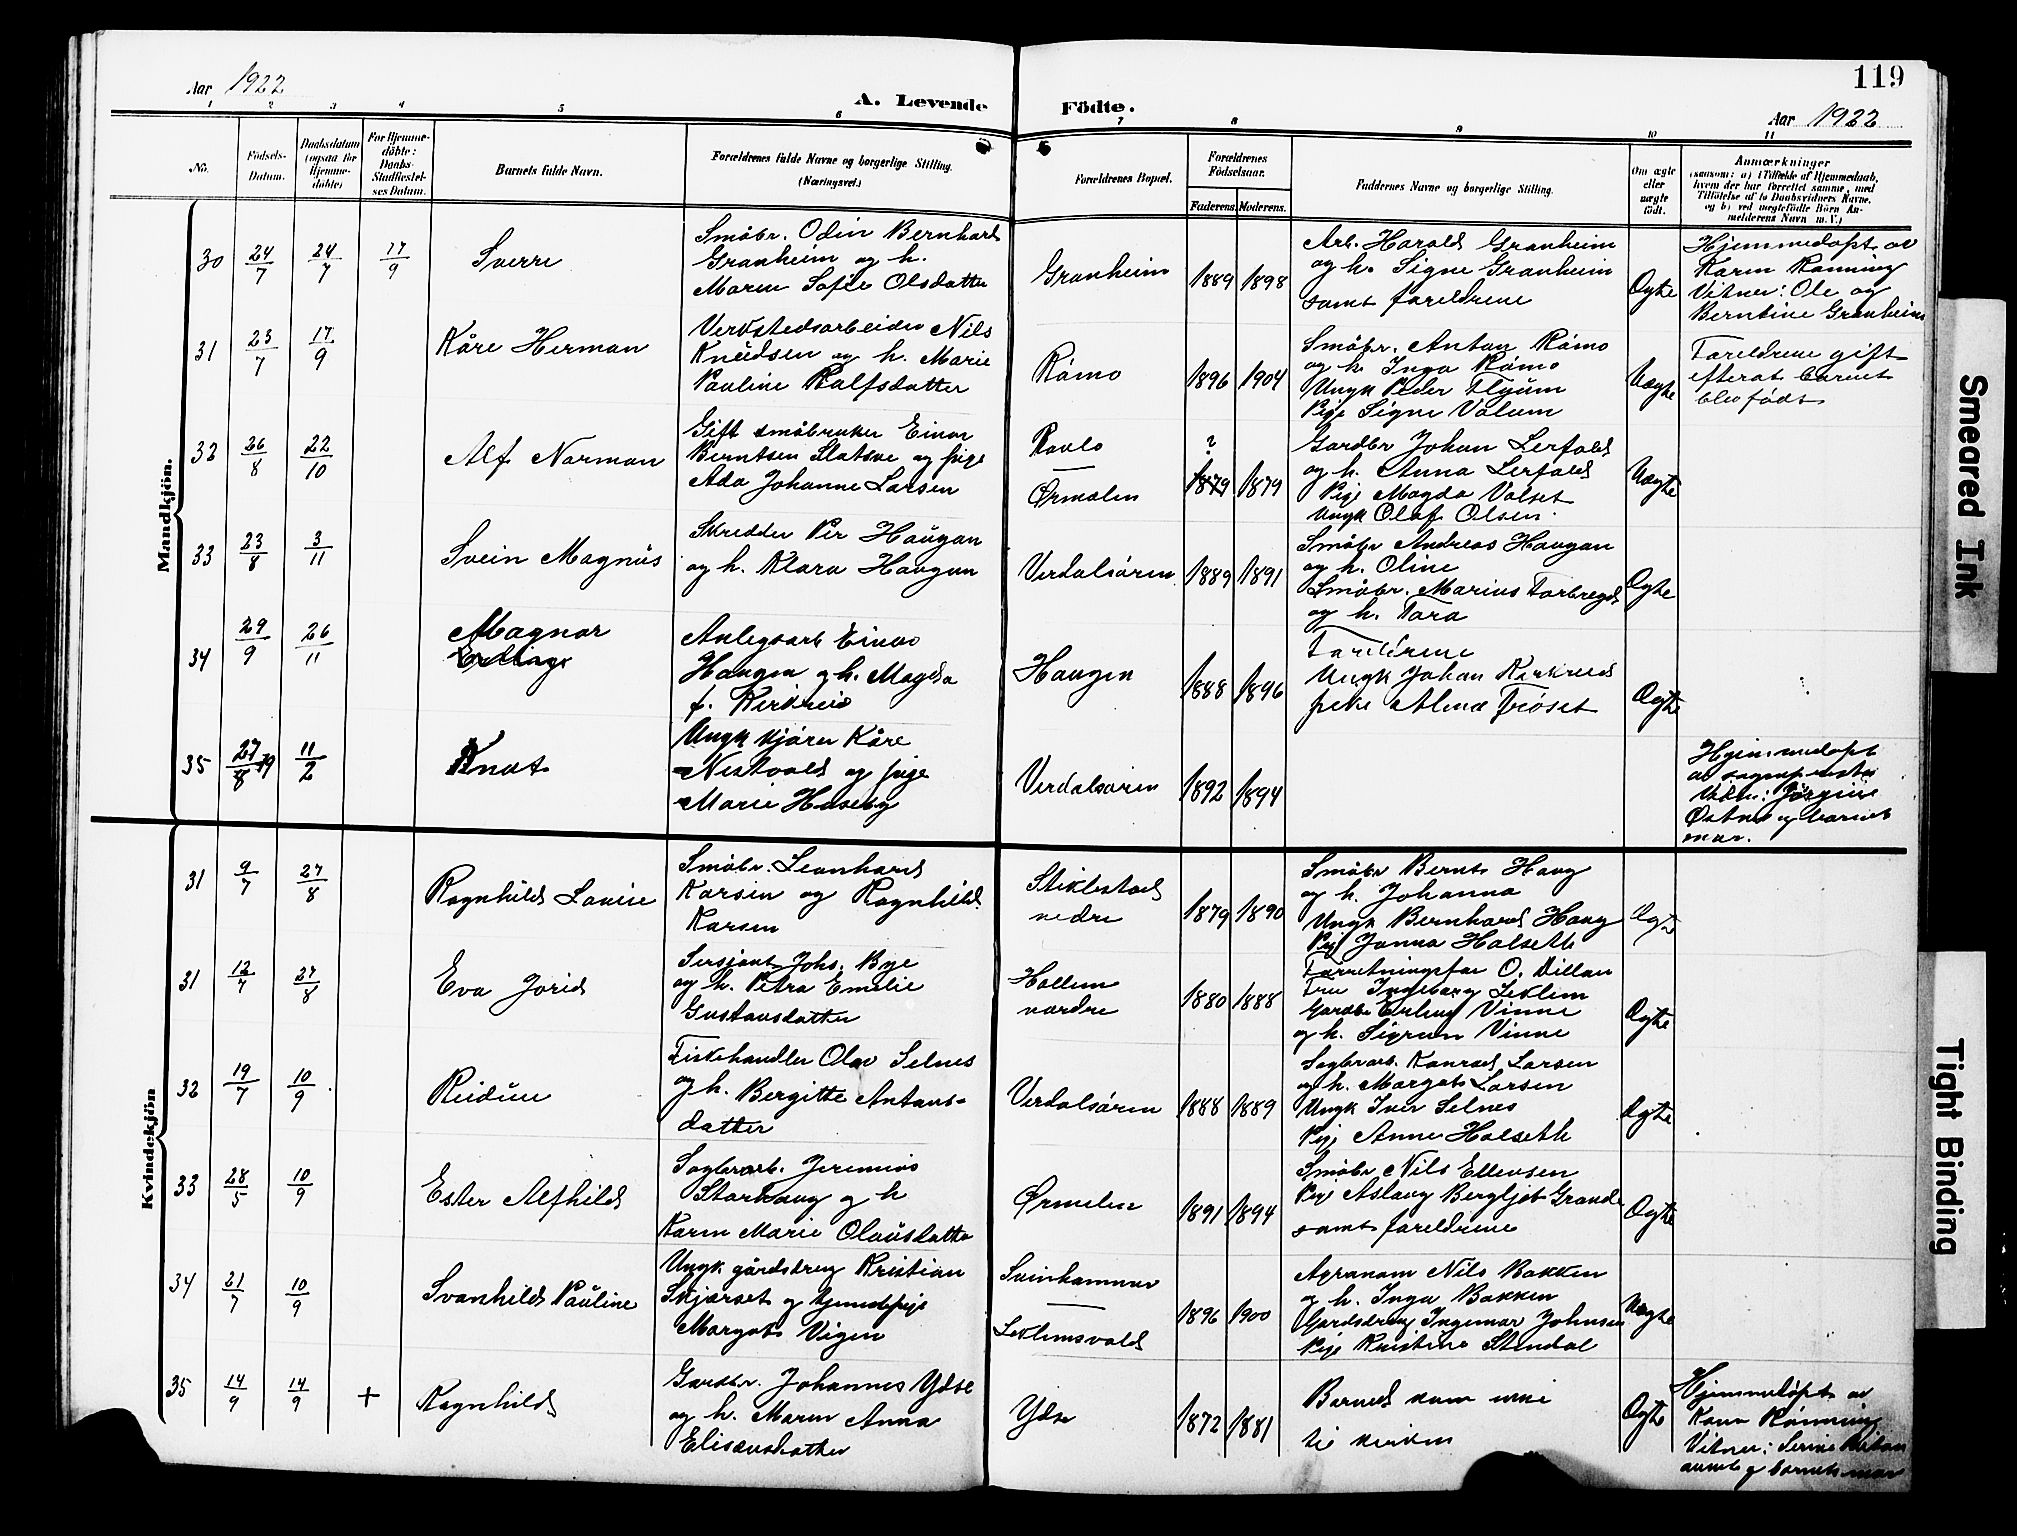 119
Aar 1922
A. Levende Födte.
Aar 1922
1 2 3 4 5 6 7 8 9 10 11
No.
Födsels-
Datum.
Daabsdatum
(ogsaa for
Hjemme-
döbte)
For Hjemme-
döbte:
Daabs-
Stadfæstel-
ses Datum.
Barnets fulde Navn.
Forældrenes fulde Navne og borgerlige Stilling.
(Næringsvei.)
Forældrenes Bopæl.
Forældrenes
Födselsaar.
Faderens. Moderens.
Faddernes Navne og borgerlige Stilling.
Om ægte
eller
uægte
födt.
Anmærkninger
(saasom: a) i Tilfælde af Hjemmedaab,
hvem der har forrettet samme, med
Tilföielse af to Daabsvidners Navne,
og b) ved uægtefödte Börn An-
melderens Navn m. V.)
Mandkjön.
30 24/7 24/7 17/9 Sverre
Småbr. Odin Bernhard
Granheim og h.
Maren Sofie Olsdatter
Granheim 1889 1898
Arb. Harald Granheim
og h. Signe Granheim
samt foreldrene
Ægte
Hjemmedøpt av
Karen Rønning
Vitner: Ole og
Berntine Granheim
31 23/7 17/9 Kåre Herman
Verkstedsarbeider Nils
Knudsen og h. Marie
Pauline Ralfsdatter
Råmo 1896 1904
Småbr. Anton Råmo
og h. Inga Råmo
Ungk Peder Flyum
Pige Signe Volum
Uægte
Foreldrene gift
efterat barnet
blev født
32 26/8 22/10 Alf Norman
Gift småbruker Einar
Berntsen Slatsve og pige
Ada Johanne Larsen
Ravlo
—
Ørmelen
? 1879 1879
Gardbr Johan Lerfald
og h. Anna Lerfald
Pige Magda Valset
Ungk Olaf Olsen.
Uægte
33 23/8 3/11 Svein Magnus
Skredder Per Haugan
og h. Klara Haugan
Verdalsøren 1889 1891
Småbr Andreas Haugan
og h. Oline
Småbr. Marius Forbregd
og h. Tora
Ægte
34 29/9 26/11 Magnar
Erling
Anlegsarb Einar
Haugen og h. Magda
f. Kirkreid
Haugen 1888 1896
Foreldrene
Ungk Johan Kirkreid
pike Alma Frøset
Ægte
35 27/8 19 11/2 Knut
Ungk kjører Kåre
Nestvold og pige
Marie Huseby
Verdalsøren 1892 1894
Hjemmedøpt
av sognepresten
Vitner: Jørgine
Østnes og barnets
mor.
Kvindekjön
31 9/7 27/8 Ragnhild Lovise
Småbr. Leonhard
Karsen og Ragnhild
Karsen
Stiklestad
nedre
1879 1890
Småbr Bernt Haug
og h. Johanna
Ungk Bernhard Haug
Pige Janna Halseth
Ægte
31 12/7 27/8 Eva Jorid
Sersjant Johs. Bye
og h. Petra Emilie
Gustavsdatter
Hallem
nordre
1880 1888
Forretningsfør O. Villan
Fru Ingeborg Leklem
Gardbr Erling Vinne
og h. Sigrun Vinne
Ægte
32 19/7 10/9 Reidun
Fiskehandler Olav Selnes
og h. Bergitte Antons-
datter
Verdalsøren 1888 1889
Sagbrarb. Konrad Larsen
og h. Margot Larsen
Ungk Iver Selnes
Pige Anne Halseth
Ægte
33 28/5 10/9 Ester Alfhild
Sagbrarb. Jeremias
Storhaug og h
Karen Marie Olausdatter
Ørmelen 1891 1894
Småbr Nils Ellevsen
Pige Aslaug Bergljot Grande
samt foreldrene
Ægte
34 21/7 10/9 Svanhild Pauline
Ungk gårdsdreng Kristian
Skjærset og hjemmepige
Margot Vigen
Svinhammar
—
Leklemsvald
1896 1900
Agronom Nils Bakken
og h. Inga Bakken
Gardsdreng Ingemar Johnsen
Pige Kristine Stendal
Uægte
35 14/9 14/9 + Ragnhild
Gardbr. Johannes Ydse
og h. Maren Anna
Eliseusdatter
Ydse 1872 1881
Barnet kom ikke
til kirken
Ægte
Hjemmedøpt av
Karen Rønning
Vitner: Serine
og barnets mor
Smeared Ink
Tight Binding